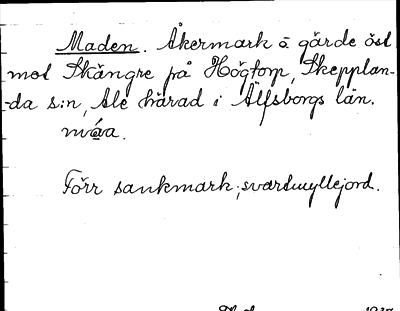 Maden. Åkermark å gärde öst
mot Skångre på Högtorp, Skepplan-
-da s:n, Ale härad i Älfsborgs län.
Förr sankmark; svartmyllejord.